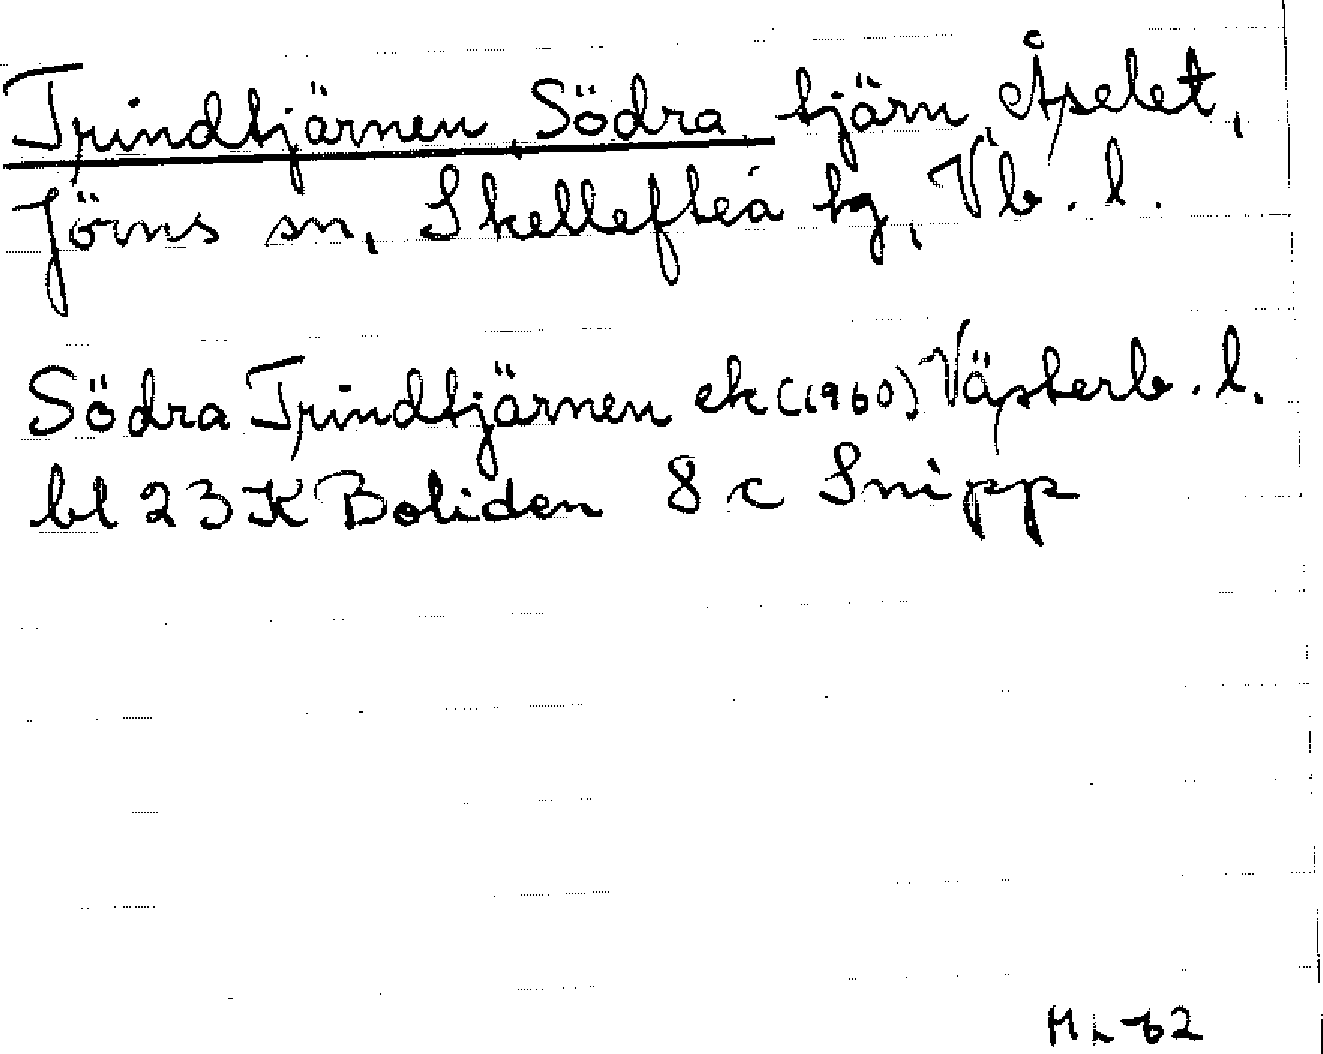 Trindtjärnen, Södra tjärn, Åselet,
Jörns sn, Skellefteå tg, Vb. l.
Södra Trindtjärnen ek (1960) Västerb. l.
bl 23 K Boliden 8 c Snipp